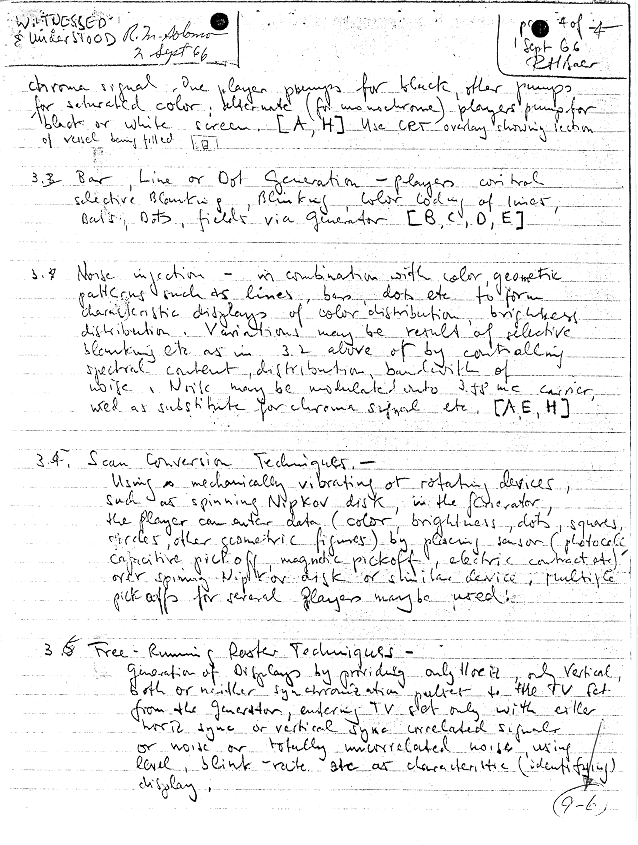 WITNESSED
& UNDERSTOOD R. M. Solomon
2 Sept 66
page 4 of 4
1 Sept 66
RHBaer
chroma signal. One player pumps for black, other pumps
for saturated color; alternate (for monochrome) players pump for
black or white screen. [A, H] Use CRT overlay showing section
of vessel being filled
3.3 Bar, Line or Dot Generation – players control
selective Blanking, Blinking, Color Coding of lines,
Bars, Dots, fields via Generator [B, C, D, E]
Noise injection – in combination with color, geometric
patterns such as lines, bars, dots etc to form
characteristic displays of color distribution, brightness
distribution. Variations may be result of selective
blanking etc as in 3.2 above of by controlling
spectral content, distribution, bandwidth of
noise. Noise may be modulated onto 3.58 mc carrier,
used as substitute for chroma signal etc. [A, E, H]
Scan Conversion Techniques. –
Using a mechanically vibrating or rotating devices,
such as spinning Nipkov disk, in the generator,
the player can enter data (color, brightness, dots, squares,
circles, other geometric figures) by placing sensor (photocell
capacitive pickoff, magnetic pickoff, electric contract etc)
over spinning Nipkov disk or similar device, multiple
pickoffs for several players may be used.
Free-Running Raster Techniques –
Generation of Displays by providing only Horiz, only Vertical,
both or neither synchronization pulses to the TV set
from the generator, entering TV set only with either
horiz sync or vertical sync correlated signals
or noise or totally uncorrelated noise, using
level, blink-rate etc as characteristic (identifying)
display.
(9-6)